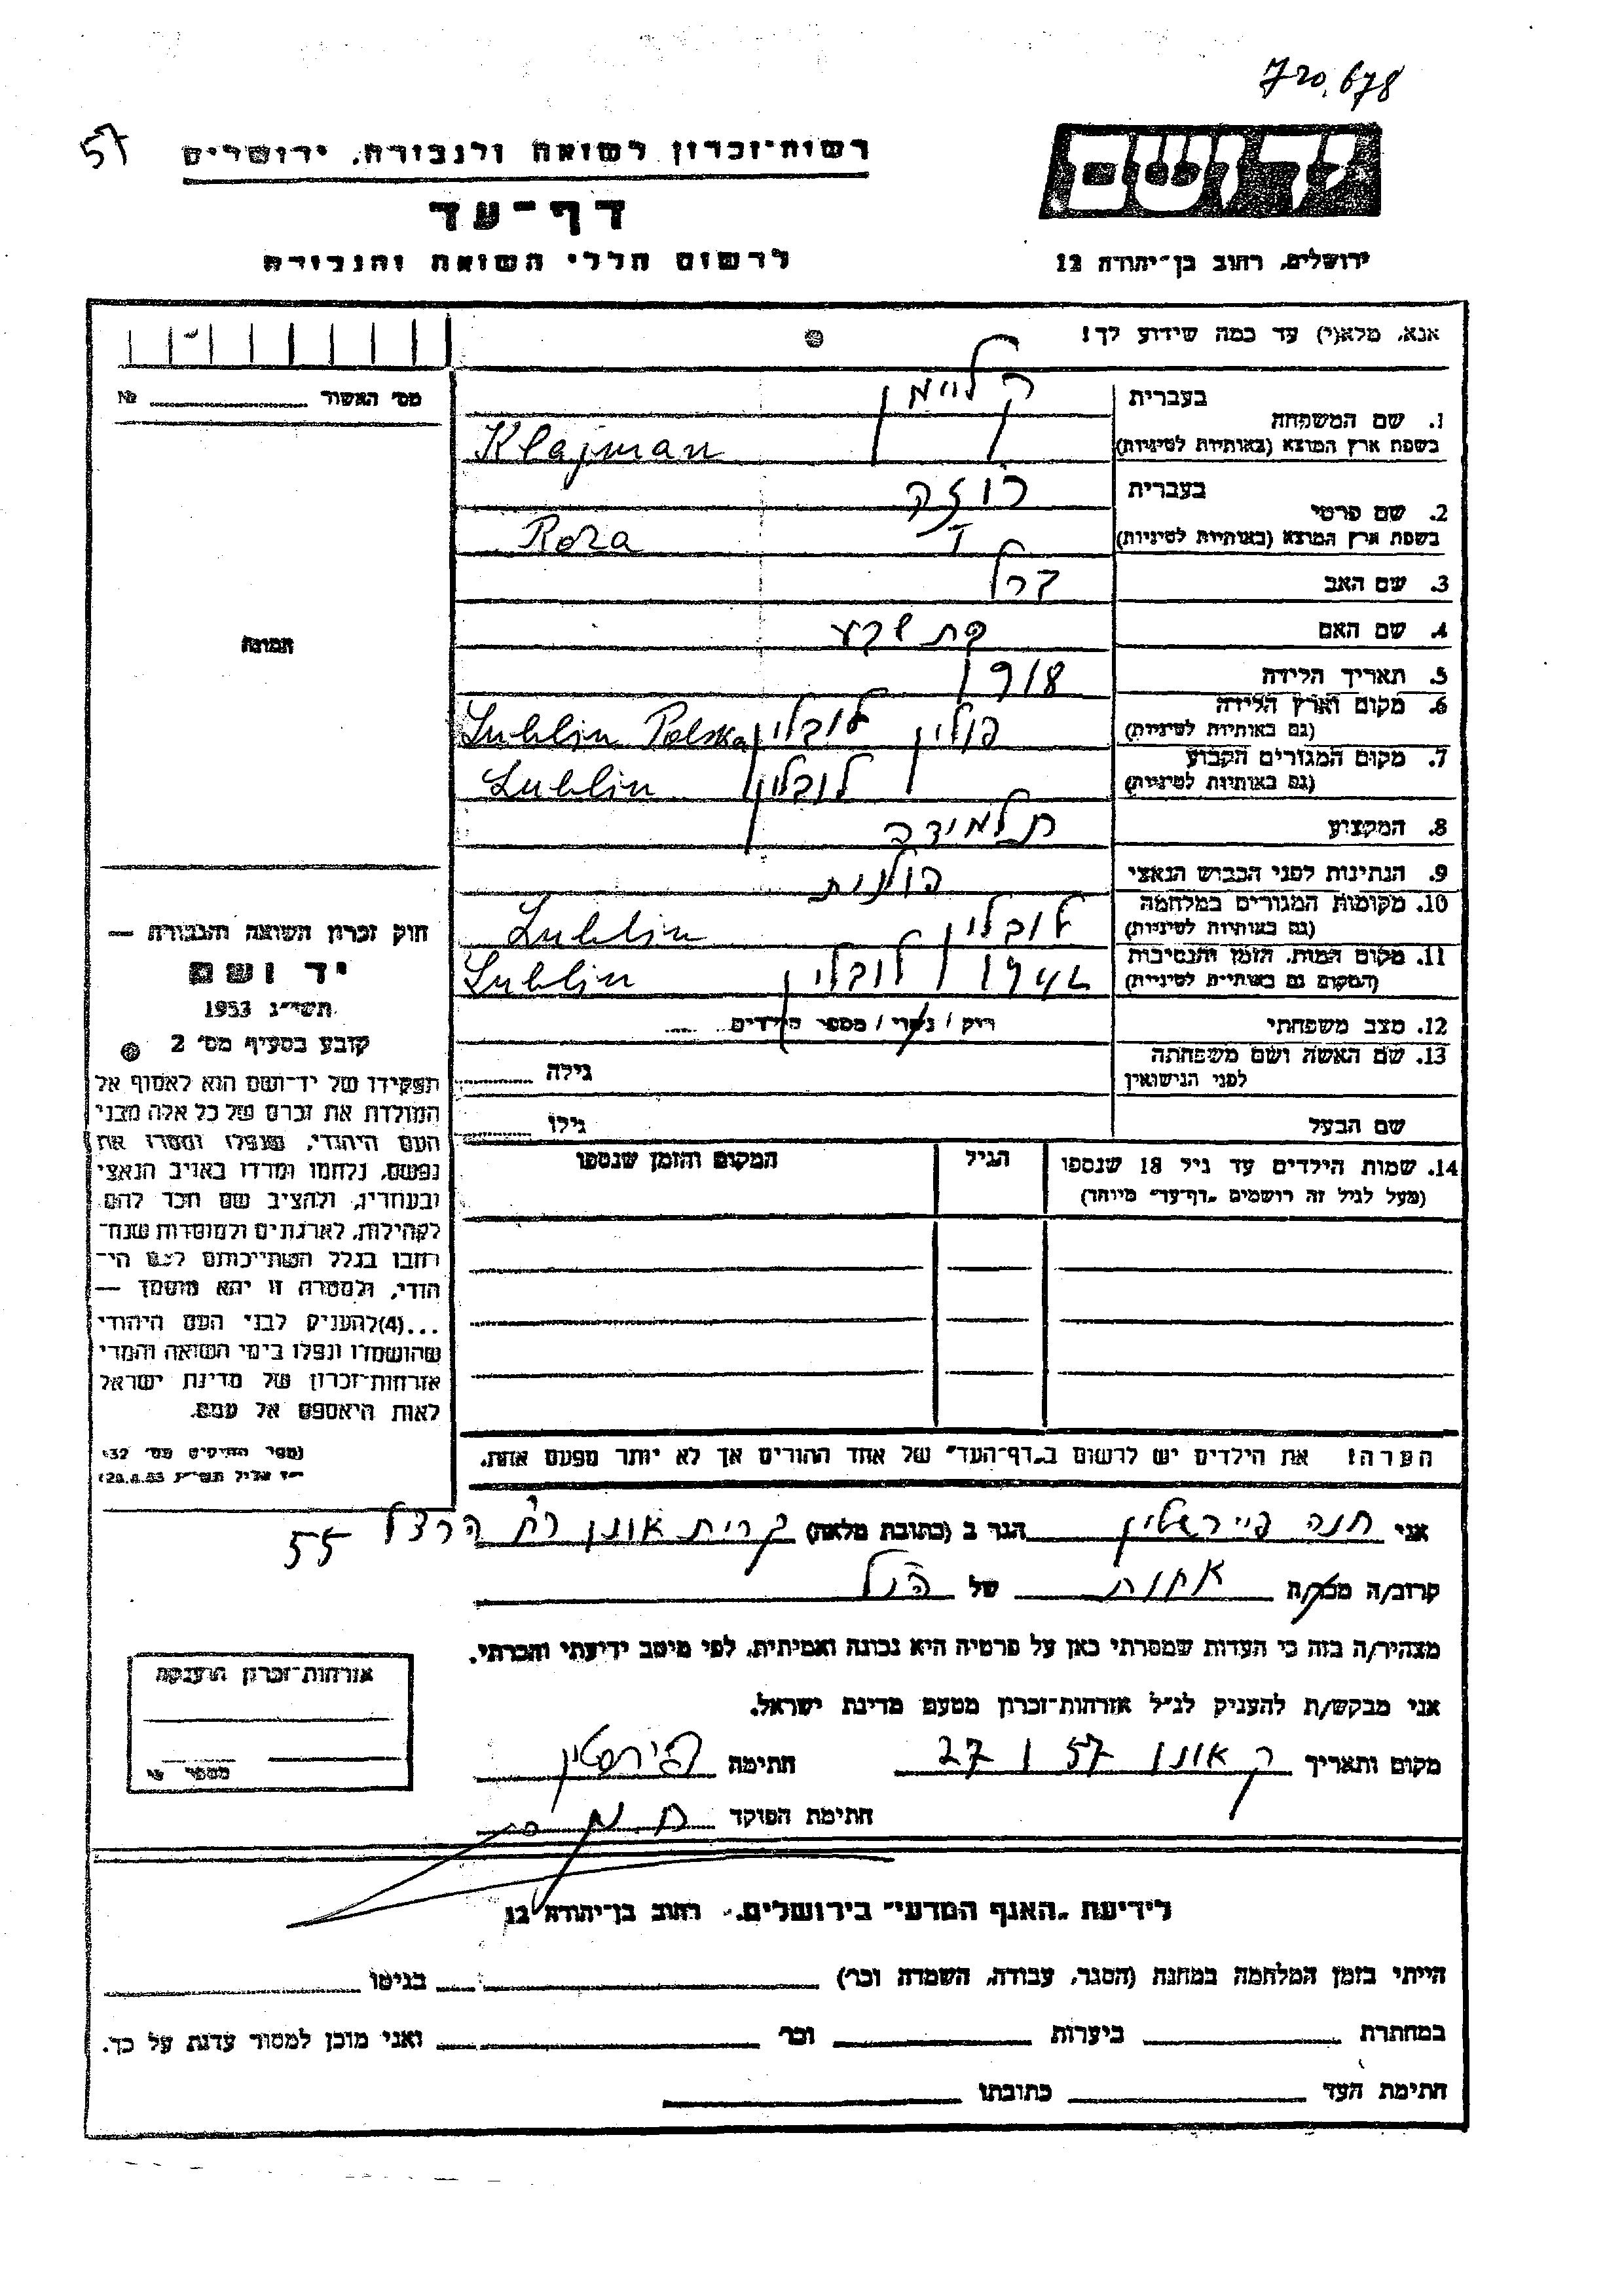 720,678
57
רשות־זכרון לשואה ולגבורה, ירושלים
יד ושם
דף־עד
לרשום חללי השואה והגבורה
ירושלים, רחוב בן־יהודה 12
אנא, מלא(י) עד כמה שידוע לך!
מס׳ האשור № 
1. שם המשפחה
בעברית קליימן
בשפת ארץ המוצא (באותיות לטיניות) Klajman
2. שם פרטי
בעברית רוזה
בשפת ארץ המוצא (באותיות לטיניות) Roza
3. שם האב
4. שם האם בת שבע
5. תאריך הלידה 1918
6. מקום וארץ הלידה (גם באותיות לטיניות) פולין לובלין Lublin Polska
7. מקום המגורים הקבוע (גם באותיות לטיניות) לובלין Lublin
8. המקצוע תלמידה
9. הנתינות לפני הכבוש הנאצי פולנית
10. מקומות המגורים במלחמה (גם באותיות לטיניות) לובלין Lublin
11. מקום המות, הזמן והנסיבות (המקום גם באותיות לטיניות) 1942 לובלין Lublin
12. מצב משפחתי רוק / נשוי / מספר הילדים
13. שם האשה ושם משפחתה לפני הנישואין גילה
שם הבעל גילו
14. שמות הילדים עד גיל 18 שנספו
(מעל לגיל זה רושמים "דף־עד" מיוחד)
הגיל
המקום והזמן שנספו
הערה! את הילדים יש לרשום ב"דף־העד" של אחד ההורים אך לא יותר מפעם אחת.
תמונה
חוק זכרון השואה והגבורה —
יד ושם
תשי״ג 1953
קובע בסעיף מס׳ 2
תפקידו של יד־ושם הוא לאסוף אל
המולדת את זכרם של כל אלה מבני
העם היהודי, שנפלו ומסרו את
נפשם, נלחמו ומרדו באויב הנאצי
ובעוזריו, ולהציב שם וזכר להם,
לקהילות, לארגונים ולמוסדות שנח־
רבו בגלל השתייכותם לעם הי־
הודי, ולמטרה זו יהא מוסמך —
...(4) להעניק לבני העם היהודי
שהושמדו ונפלו בימי השואה והמרי
אזרחות־זכרון של מדינת ישראל
לאות היאספם אל עמם.
אני חנה פיירשטין הגר ב (כתובת מלאה) קרית אונו רח׳ הרצל 55
קרוב/ה מכר/ה אחות של הנ״ל
מצהיר/ה בזה כי העדות שמסרתי כאן על פרטיה היא נכונה ואמיתית, לפי מיטב ידיעתי והכרתי.
אני מבקש/ת להעניק לנ״ל אזרחות־זכרון מטעם מדינת ישראל.
מקום ותאריך ק אונו 27 I 57 חתימה פירשטין
חתימת הפוקד
אזרחות־זכרון הוענקה
לידיעת "האגף המדעי" בירושלים, רחוב בן־יהודה 12
הייתי בזמן המלחמה במחנה (הסגר, עבודה, השמדה וכו׳) בגיטו
במחתרת ביערות וכו׳ ואני מוכן למסור עדות על כך.
חתימת העד כתובתו